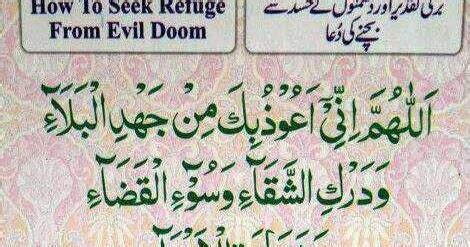 How To Seek Refuge
From Evil Doom
بری تقدیر اور دشمنوں کے حسد سے
بچنے کی دُعا
اَللّٰهُمَّ اِنِّیْ اَعُوْذُبِكَ مِنْ جَهْدِ الْبَلَآءِ
وَدَرَكِ الشَّقَآءِ وَسُوْٓءِ الْقَضَآءِ